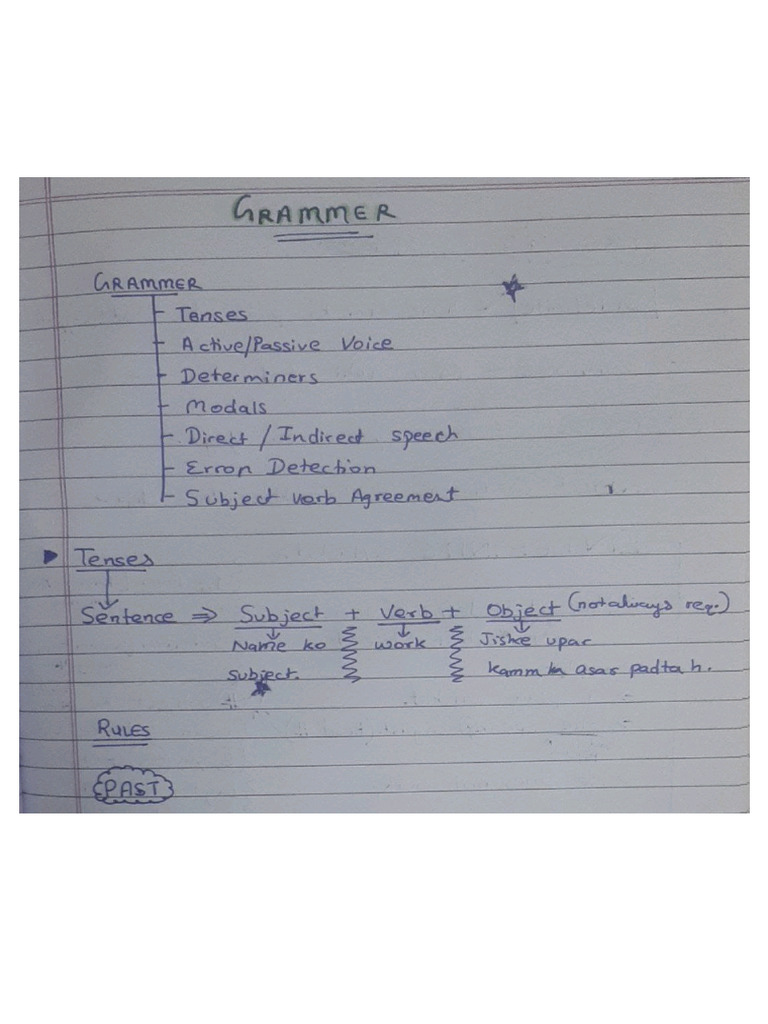 GRAMMER
GRAMMER
Tenses
Active/Passive Voice
Determiners
Modals
Direct / Indirect speech
Error Detection
Subject verb Agreement
Tenses
Sentence ⇒ Subject + Verb + Object (not always req.)
Name ko work Jiske upar
Subject. kamm ka asar padta h.
RULES
PAST